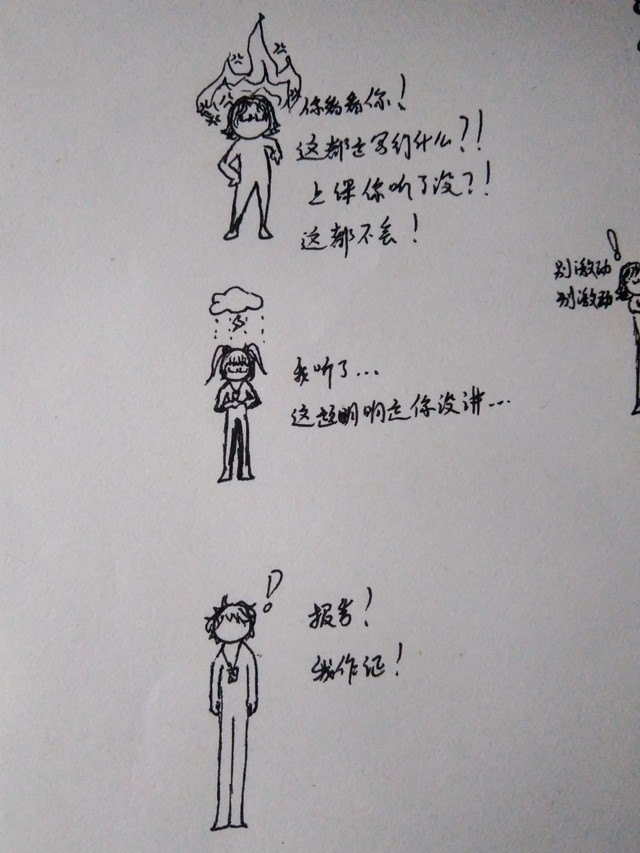 你看看你！
这都写的什么？！
上课你听了没？！
这都不会！
别激动
别激动
我听了...
这题明明是你没讲...
报告！
我作证！